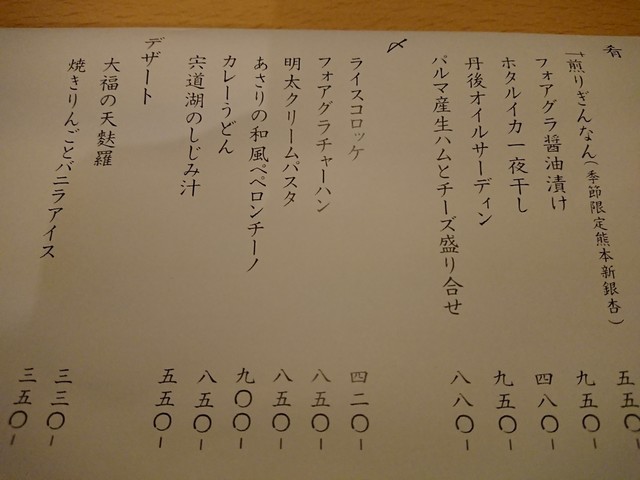 肴
煎りぎんなん(季節限定熊本新銀杏) 五五〇-
フォアグラ醤油漬け 九五〇-
ホタルイカ一夜干し 四八〇-
丹後オイルサーディン 九五〇-
パルマ産生ハムとチーズ盛り合せ 八八〇-
〆
ライスコロッケ 四二〇-
フォアグラチャーハン 八五〇-
明太クリームパスタ 八五〇-
あさりの和風ペペロンチーノ 九〇〇-
カレーうどん 八五〇-
宍道湖のしじみ汁 五五〇-
デザート
大福の天麩羅 三三〇-
焼きりんごとバニラアイス 三五〇-